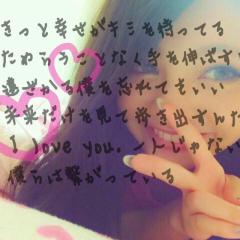 きっと幸せがキミを待ってる
たわらうことなく手を伸ばす
遠ざかる僕を忘れてもいい
未来だけを見て歩き出すんだ
I love you. 一人じゃない
僕らは繋がっている